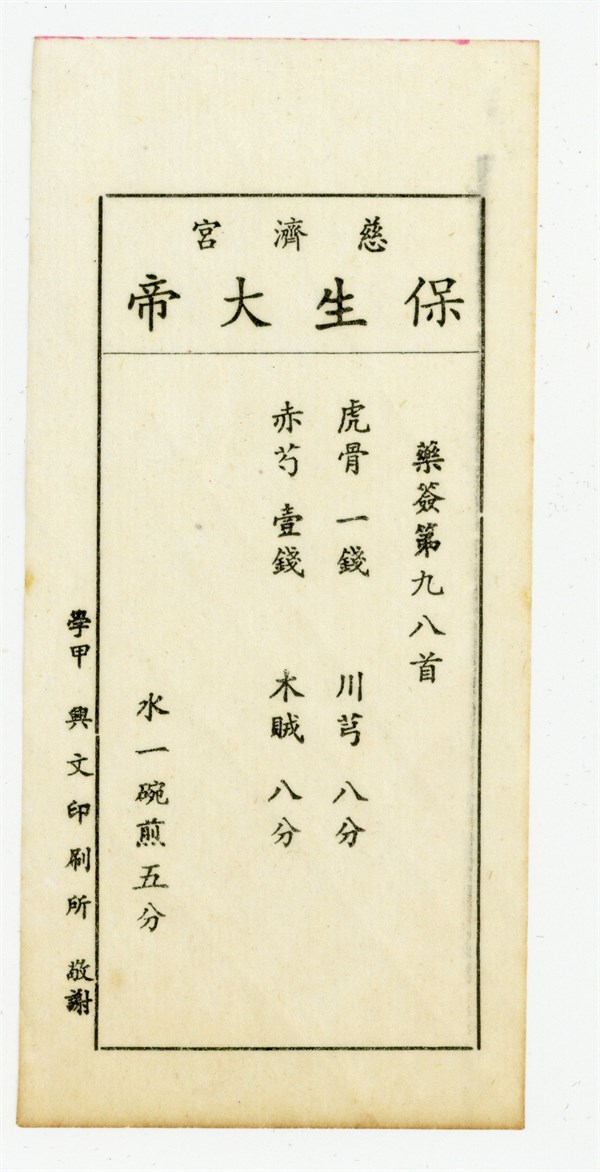 慈濟宮
保生大帝
藥簽第九八首
虎骨 一錢 川芎 八分
赤芍 壹錢 木賊 八分
水一碗煎五分
學甲 興文印刷所 敬謝